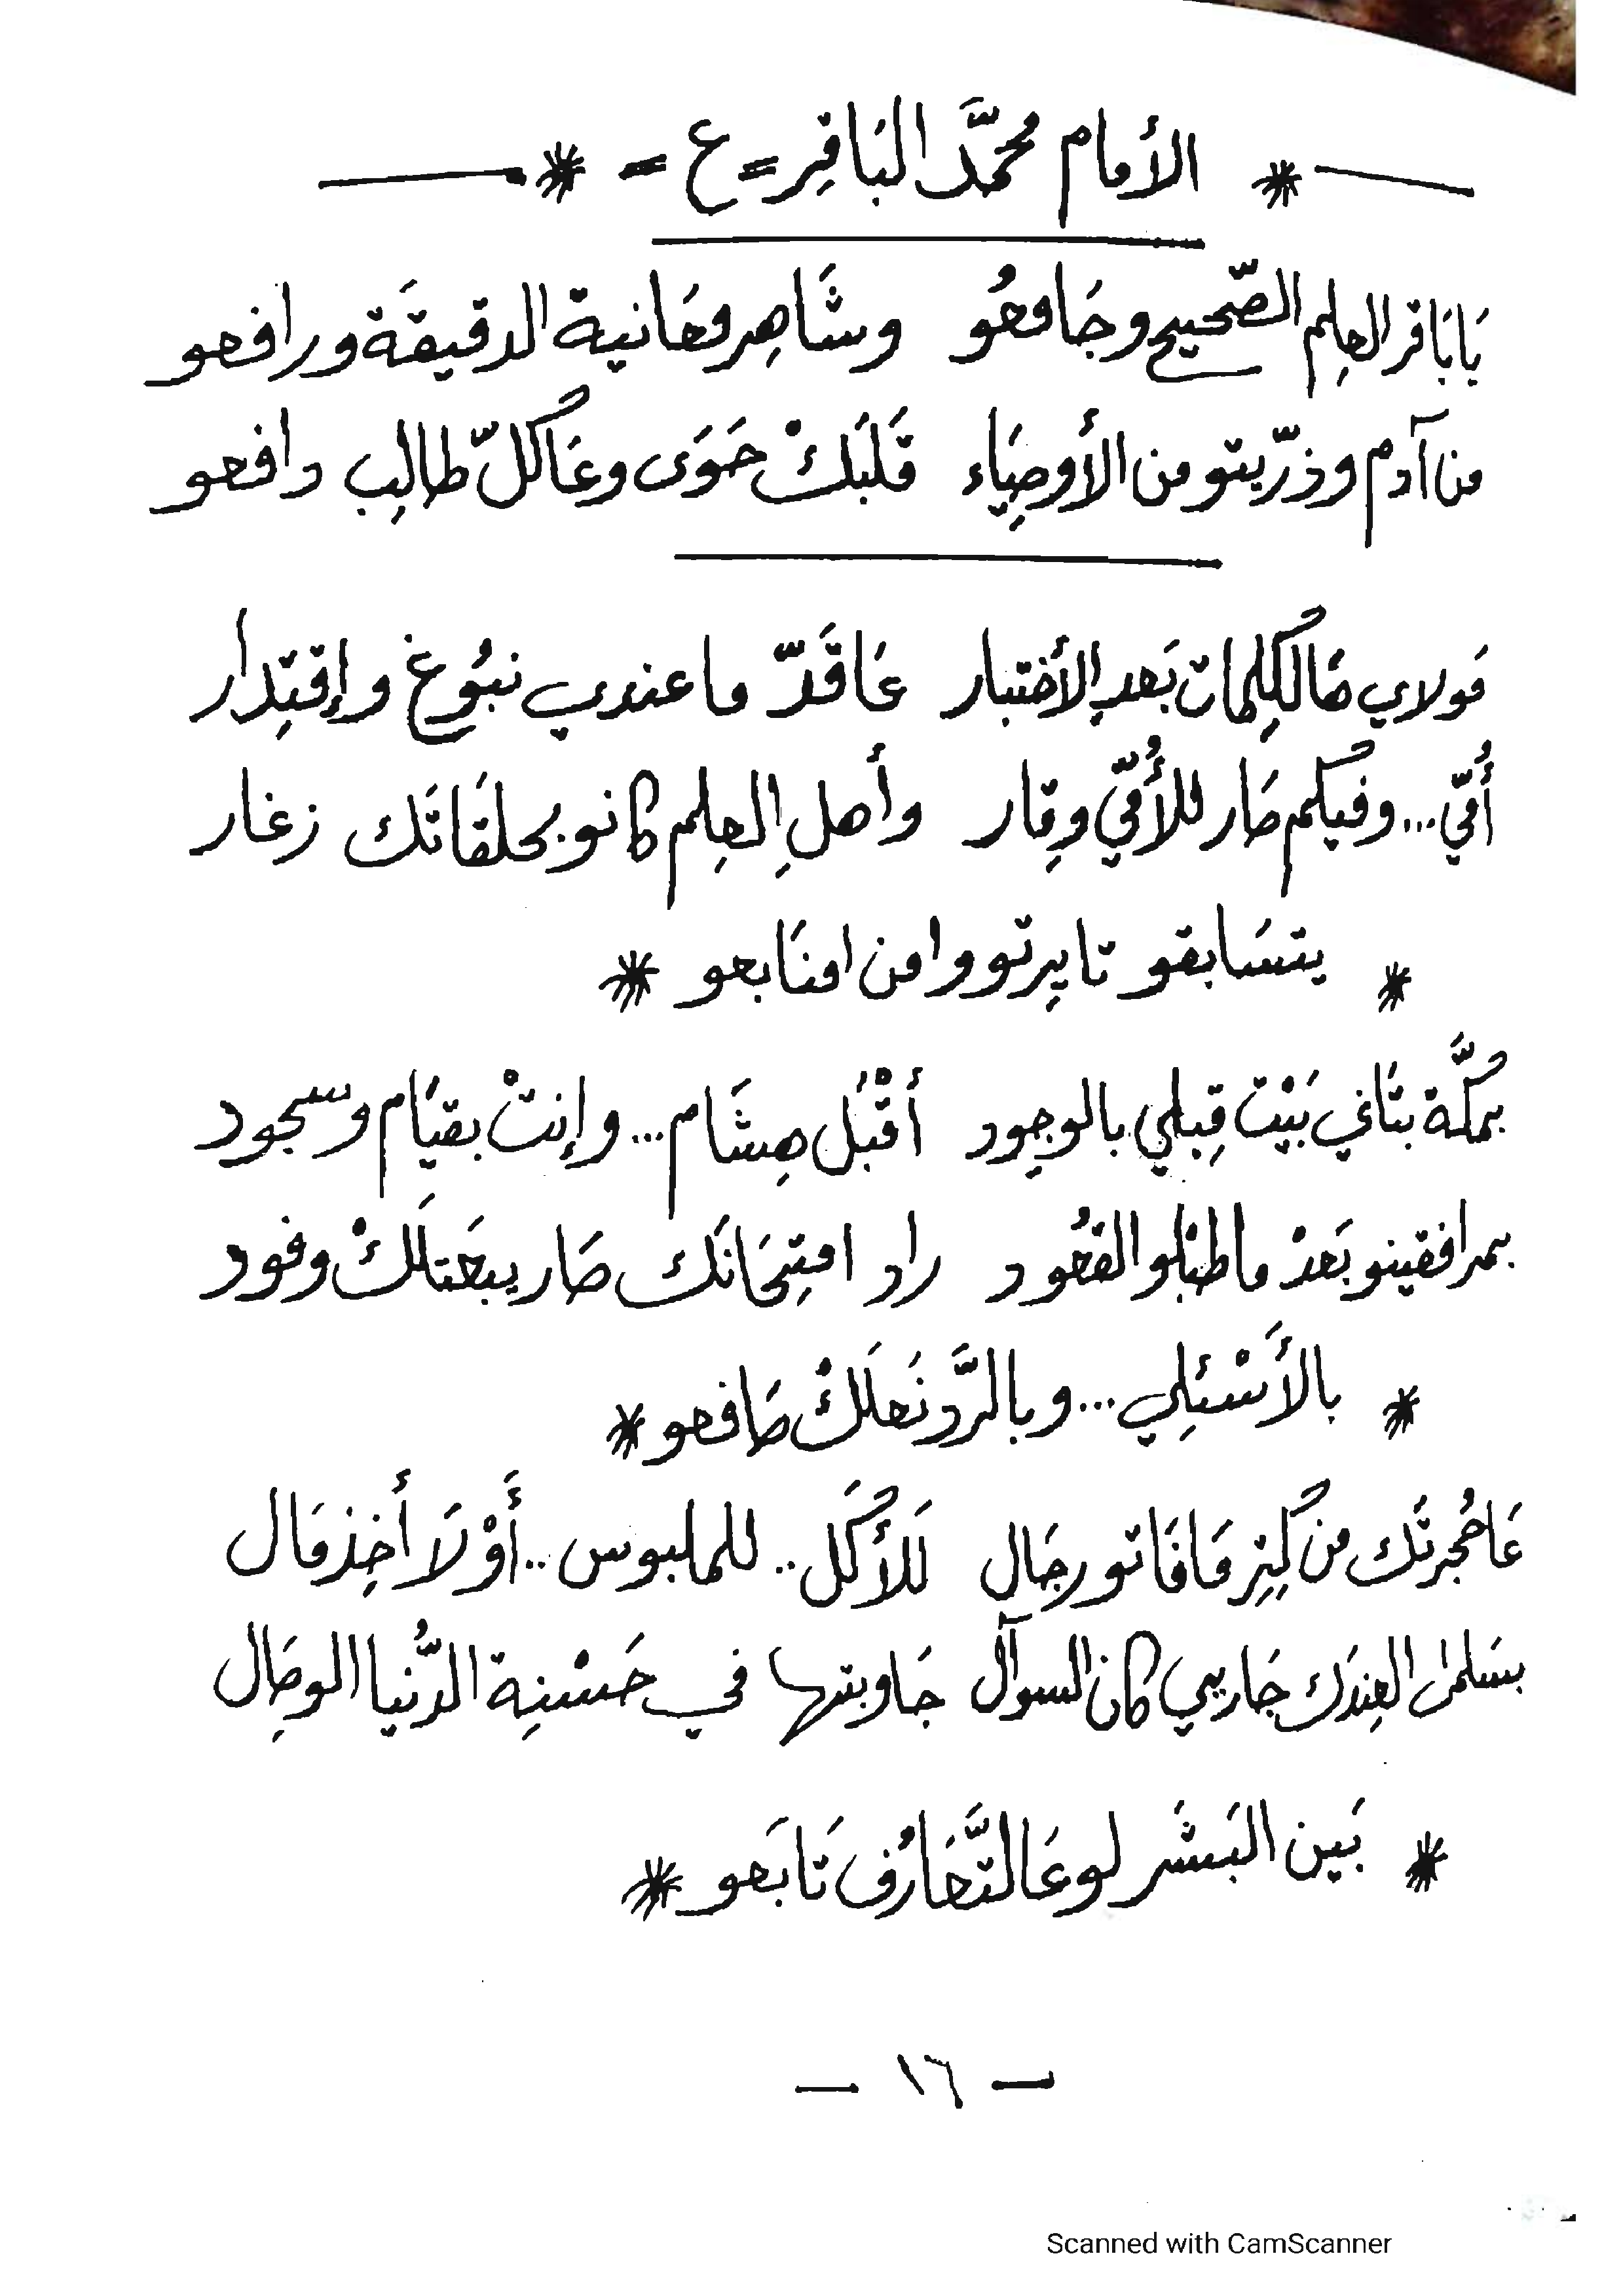 * الأمام محمَّد البَاقِر = ع = *
يَا بَاقر العِلم الصّحيح وجَامعُو وشَاهِر معَانية الدقيقَة ورافعو
من آدم وذرّيتو من الأوصِيَاء قَلبَكْ حَوَى وعَا كُلّ طالِب دافعو
مَولاي هَالكِلِمات بَعد الأختبار عَا قَدّ ما عندي نبُوغ وإقتِدار
أُمّي... وفيكم صَار للأُمّي وِقار وأهلِ العِلم كانو بحلقَاتَك زغار
* يتسَابقو تا يِرتووا من امنَابعو *
بمكَّة بتَاني بَيْت قِبلي بالوجود أقْبَل هِشَام... وإنتْ بقيَام وسجود
بمرافقينو بَعدْ ما طبْلو القعُود راد امتِحَانَك صَار يبعَتلَكْ وفود
* بالأَسْئِلِي... وبالرَّد نَعلَكْ صَافعو *
عَا حُجرتَك من كِتِر مَا فَاتو رجَال لَلأكَل.. للملبوس.. أَوْ لَا أخِذ مَال
بسَلمى العِندَك جَاريي كان السوآل جَاوبتها في حَسْنِة الدُّنيا الوصَال
* بَين البَشَر لو عَالتَّعَارُف تَابَعو *
— ١٦ —
Scanned with CamScanner